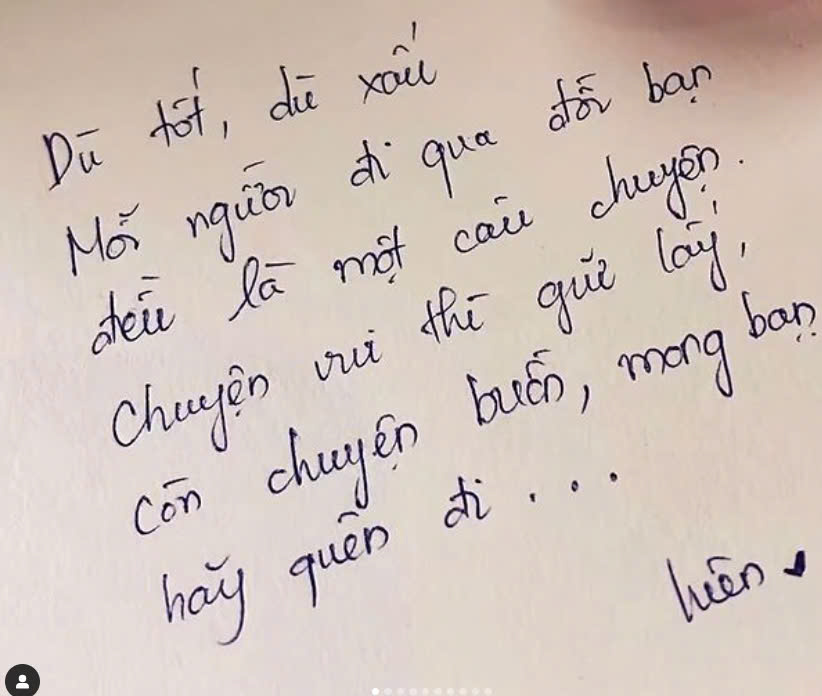 Dù tốt, dù xấu
Mỗi người đi qua đời bạn
đều là một câu chuyện.
Chuyện vui thì giữ lấy,
còn chuyện buồn, mong bạn
hãy quên đi . . .
hiên